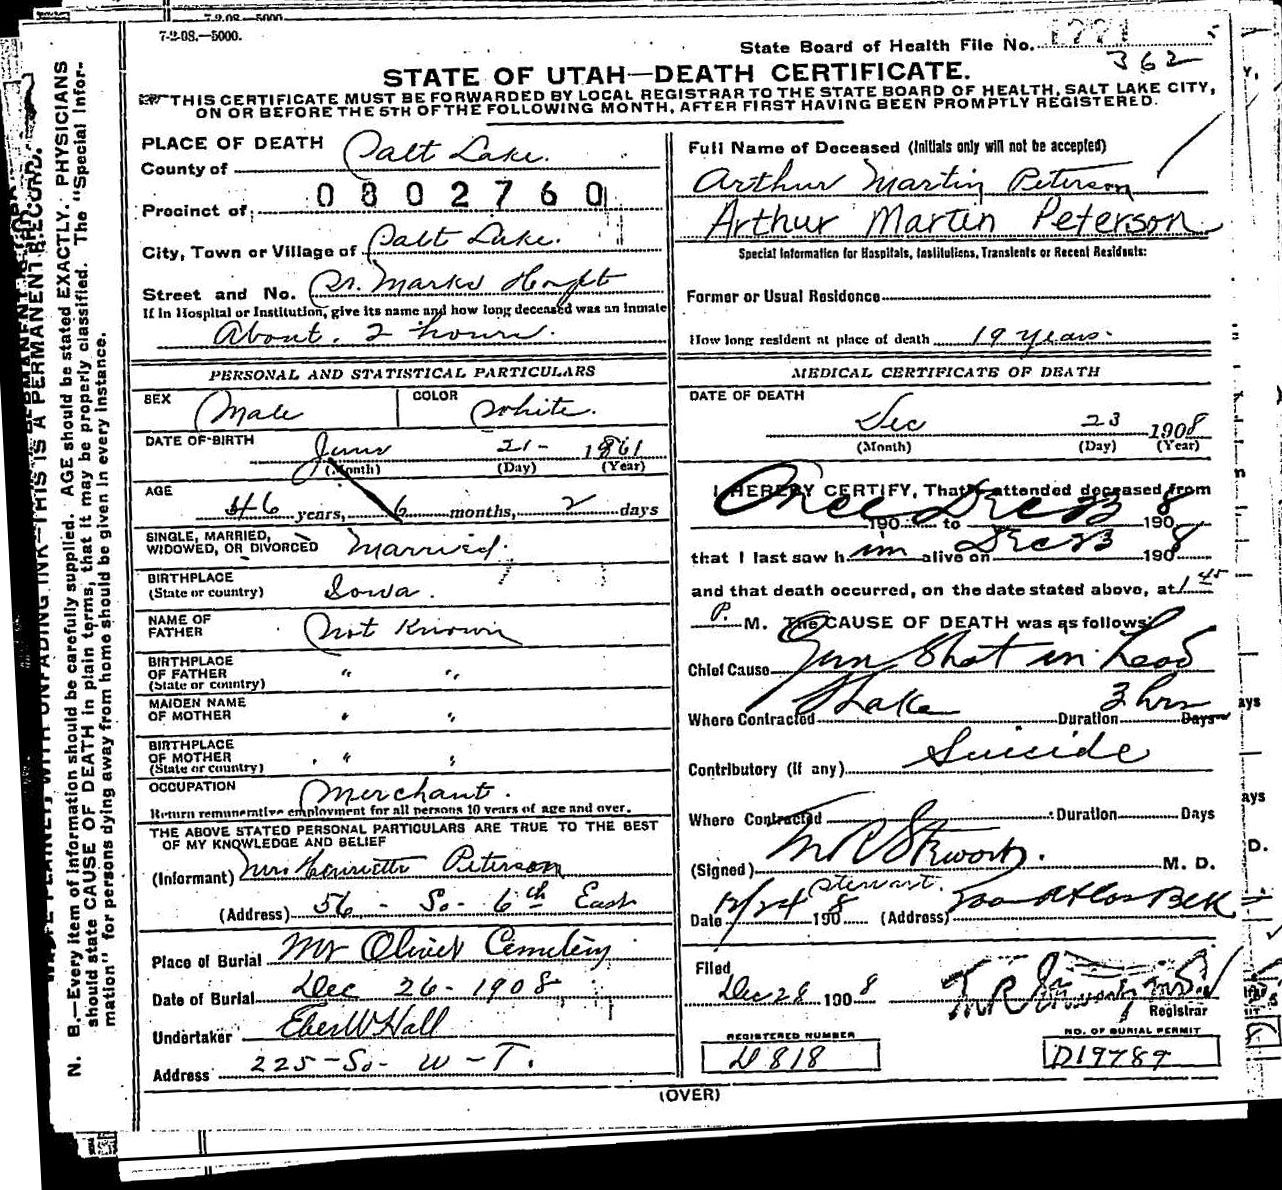 7-2-08.—5000.
State Board of Health File No. 1771
362
STATE OF UTAH—DEATH CERTIFICATE.
THIS CERTIFICATE MUST BE FORWARDED BY LOCAL REGISTRAR TO THE STATE BOARD OF HEALTH, SALT LAKE CITY,
ON OR BEFORE THE 5TH OF THE FOLLOWING MONTH, AFTER FIRST HAVING BEEN PROMPTLY REGISTERED.
N. B.—Every item of information should be carefully supplied. AGE should be stated EXACTLY. PHYSICIANS
should state CAUSE OF DEATH in plain terms, that it may be properly classified. The "Special Infor-
mation" for persons dying away from home should be given in every instance.
PLACE OF DEATH
County of Salt Lake.
0802760
Precinct of
City, Town or Village of Salt Lake.
Street and No. Dr. Marks
If in Hospital or Institution, give its name and how long deceased was an inmate
About. 2 hours.
PERSONAL AND STATISTICAL PARTICULARS
SEX Male COLOR White.
DATE OF BIRTH June 21- 1861
(Month) (Day) (Year)
AGE 46 years, 6 months, 2 days
SINGLE, MARRIED,
WIDOWED, OR DIVORCED Married.
BIRTHPLACE
(State or country) Iowa.
NAME OF
FATHER Not Known
BIRTHPLACE
OF FATHER " "
(State or country)
MAIDEN NAME
OF MOTHER " "
BIRTHPLACE
OF MOTHER " "
(State or country)
OCCUPATION Merchant.
Return remunerative employment for all persons 10 years of age and over.
THE ABOVE STATED PERSONAL PARTICULARS ARE TRUE TO THE BEST
OF MY KNOWLEDGE AND BELIEF
(Informant) Mrs Henrietta Peterson
(Address) 56 - So- 6th East
Place of Burial Mt Olivet Cemetery
Date of Burial Dec 26-1908
Undertaker Eber W Hall
Address 225-So- W-T.
Full Name of Deceased (Initials only will not be accepted)
Arthur Martin Peterson
Arthur Martin Peterson
Special Information for Hospitals, Institutions, Transients or Recent Residents:
Former or Usual Residence
How long resident at place of death 19 years.
MEDICAL CERTIFICATE OF DEATH
DATE OF DEATH
Dec 23 1908
(Month) (Day) (Year)
I HEREBY CERTIFY, That I attended deceased from
Once Dec 23 8
190 to 190
that I last saw him alive on Dec 23 1908
and that death occurred, on the date stated above, at 1 45
P. M. The CAUSE OF DEATH was as follows:
Chief Cause Gun Shot in head
Where Contracted S Lake Duration 3 hrs Days
Contributory (if any) Suicide
Where Contracted Duration Days
(Signed) M. D.
Stewart.
Date 12/24 1908 (Address)
Filed
Dec 28 1908
Registrar
REGISTERED NUMBER
D818
NO. OF BURIAL PERMIT
D19789
(OVER)